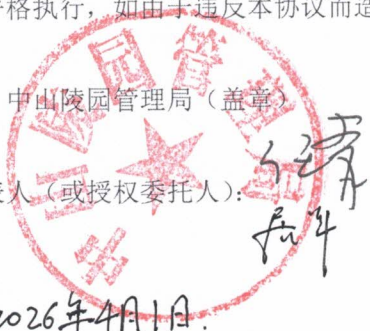 格执行，如由于违反本协议而造
中山陵园管理局（盖章）
表人（或授权委托人）：
2026年4月1日.
中山陵园管理局